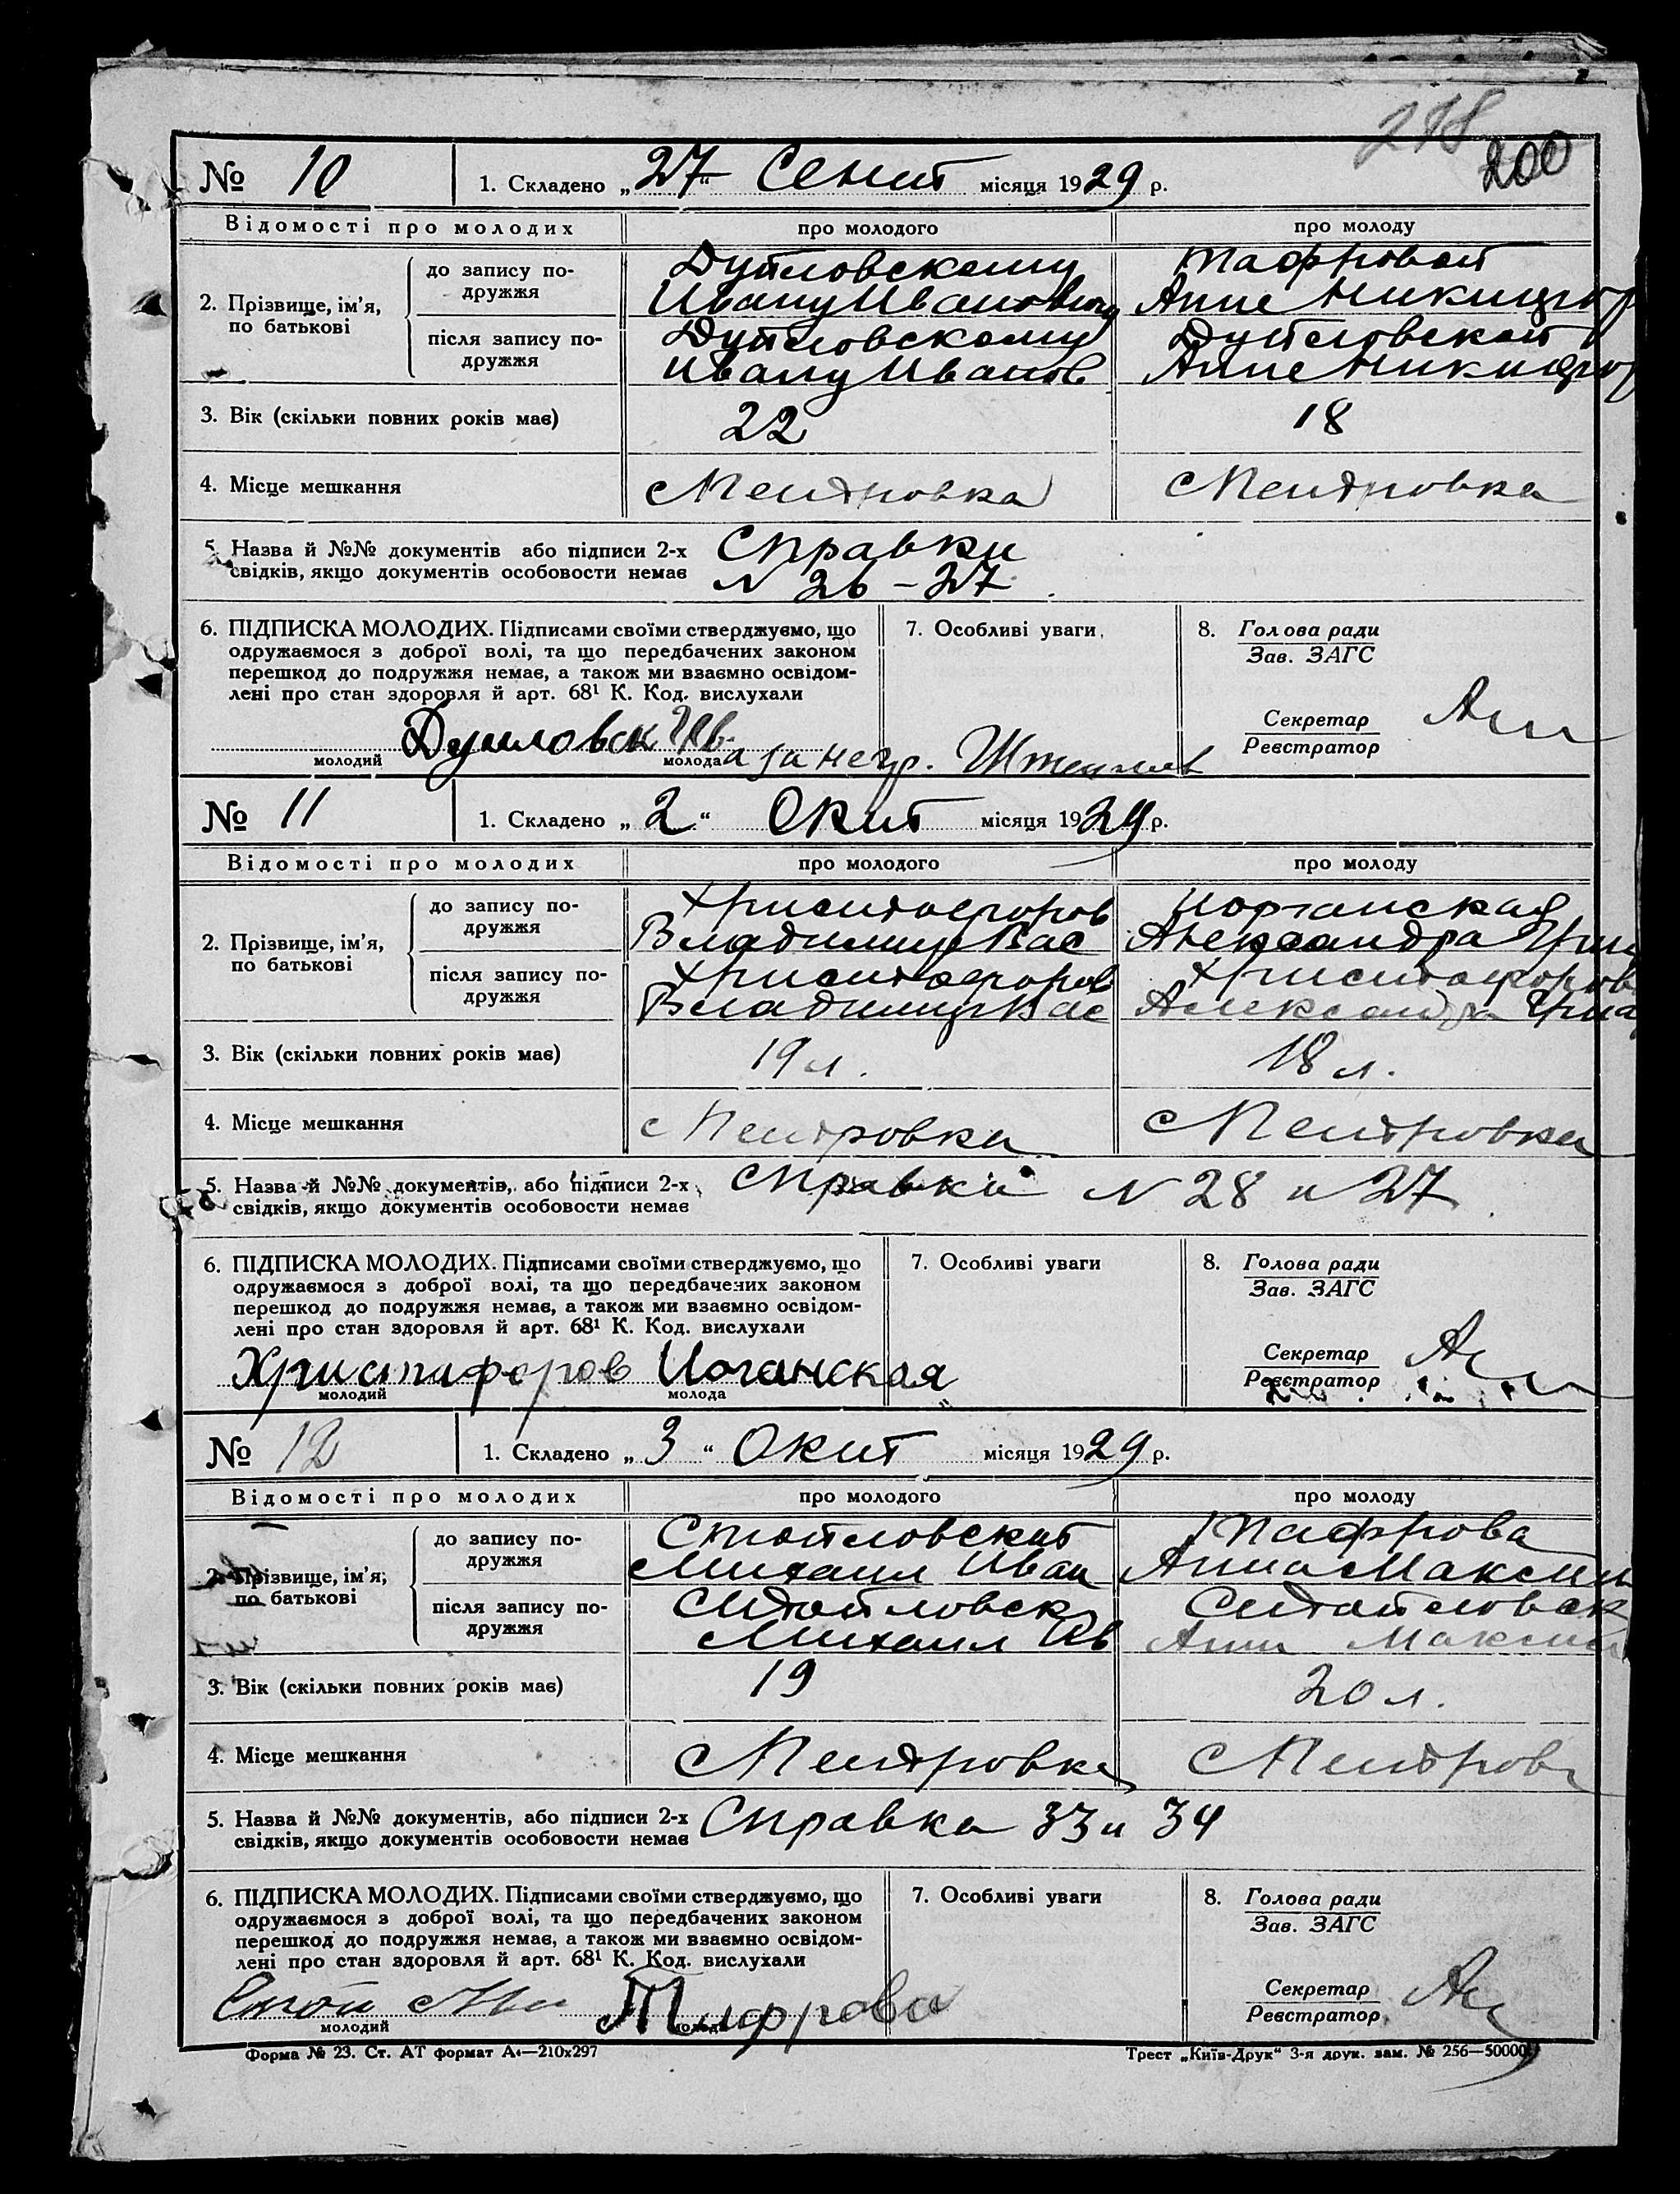 218
200
№ 10
1. Складено „27“ Сент місяця 1929 р.
Відомості про молодих
про молодого
про молоду
2. Прізвище, ім’я, по батькові
до запису по-
дружжя
Ивану Ивановичу
Анне
після запису по-
дружжя
Ивану Иванов
Анне
3. Вік (скільки повних років має)
22
18
4. Місце мешкання
с Петровка
с Петровка
5. Назва й №№ документів або підписи 2-х
свідків, якщо документів особовости немає
Справки
N 26 – 27
6. ПІДПИСКА МОЛОДИХ. Підписами своїми стверджуємо, що
одружаємося з доброї волі, та що передбачених законом
перешкод до подружжя немає, а також ми взаємно освідом-
лені про стан здоровля й арт. 68¹ К. Код. вислухали
молодий
молода
а за негр.
7. Особливі уваги
8. Голова ради
Зав. ЗАГС
Секретар
Реєстратор
№ 11
1. Складено „2“ Окт місяця 1929 р.
Відомості про молодих
про молодого
про молоду
2. Прізвище, ім’я,
по батькові
до запису по-
дружжя
Христофоров
Владимир Вас
Александра
після запису по-
дружжя
Христофоров
Владимир Вас
Христофоров
Александра
3. Вік (скільки повних років має)
19 л.
18 л.
4. Місце мешкання
с Петровка
с Петровка
5. Назва й №№ документів, або підписи 2-х
свідків, якщо документів особовости немає
Справки N 28 и 27
6. ПІДПИСКА МОЛОДИХ. Підписами своїми стверджуємо, що
одружаємося з доброї волі, та що передбачених законом
перешкод до подружжя немає, а також ми взаємно освідом-
лені про стан здоровля й арт. 68¹ К. Код. вислухали
Христифоров Иоганская
молодий
молода
7. Особливі уваги
8. Голова ради
Зав. ЗАГС
Секретар
Реєстратор
№ 12
1. Складено „3“ Окт місяця 1929 р.
Відомості про молодих
про молодого
про молоду
2. Прізвище, ім’я,
по батькові
до запису по-
дружжя
Стойловский
Михаил Иван
Тафрова
Анна Максим
після запису по-
дружжя
Стойловск
Михаил Ив
Стойловск
Анна Максим
3. Вік (скільки повних років має)
19
20 л.
4. Місце мешкання
с Петровка
с Петровк
5. Назва й №№ документів, або підписи 2-х
свідків, якщо документів особовости немає
Справка 33 и 34
6. ПІДПИСКА МОЛОДИХ. Підписами своїми стверджуємо, що
одружаємося з доброї волі, та що передбачених законом
перешкод до подружжя немає, а також ми взаємно освідом-
лені про стан здоровля й арт. 68¹ К. Код. вислухали
Стой
молодий
молода
7. Особливі уваги
8. Голова ради
Зав. ЗАГС
Секретар
Реєстратор
Форма № 23. Ст. АТ формат А₄—210х297
Трест „Київ-Друк“ 3-я друк. зам. № 256—50000